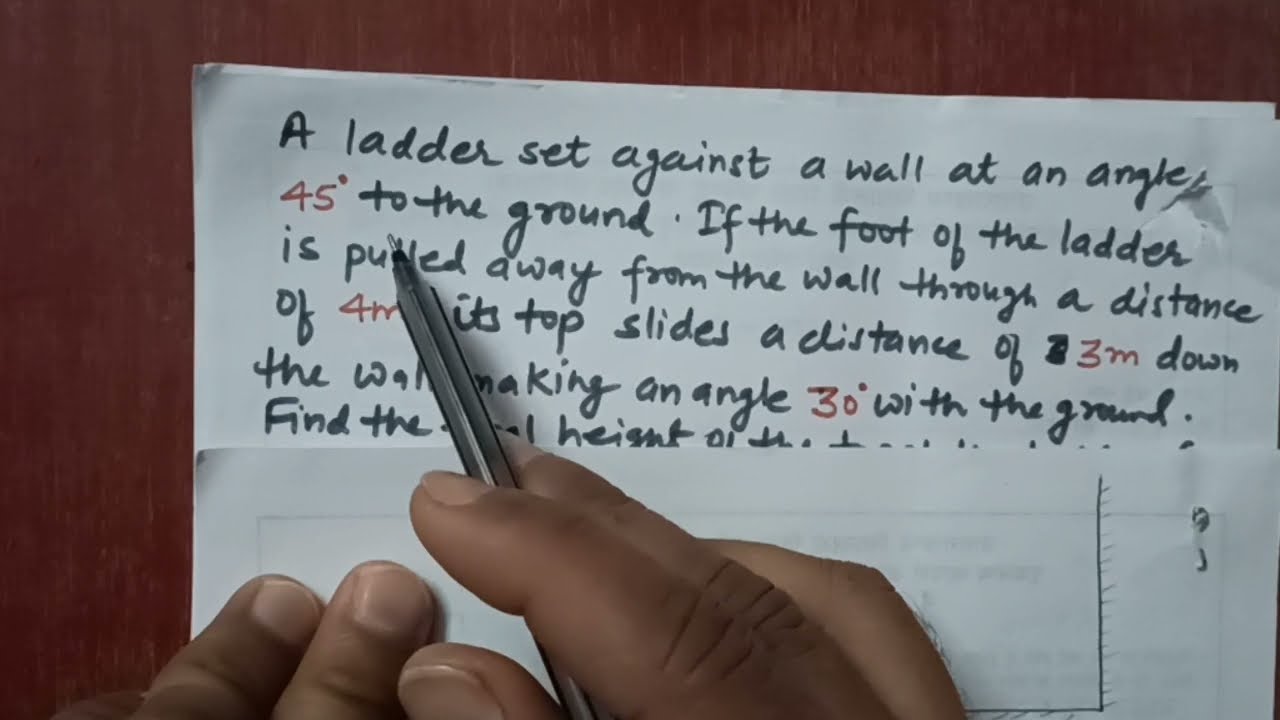 A ladder set against a wall at an angle
45° to the ground. If the foot of the ladder
is pulled away from the wall through a distance
of 4m its top slides a distance of 3m down
the wall making an angle 30° with the ground.
Find the height of the